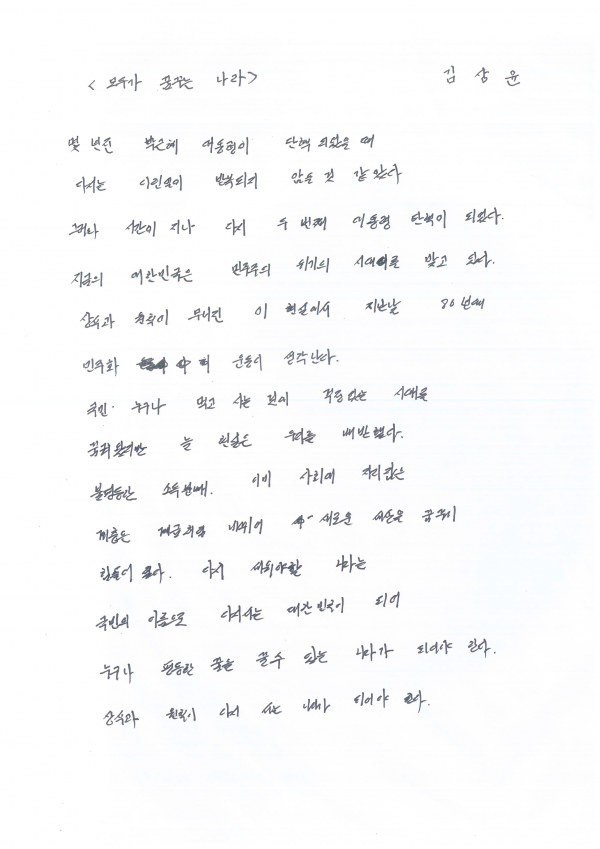 <모두가 꿈꾸는 나라> 김상윤
몇 년전 박근혜 대통령이 탄핵 되었을 때
다시는 이런일이 반복되지 않을 것 같았다
그러나 시간이 지나 다시 두 번째 대통령 탄핵이 되었다.
지금의 대한민국은 민주주의 위기의 시대를 맞고 있다.
상식과 원칙이 무너진 이 현실에서 지난날 80년대
민주화 운동이 생각난다.
국민 누구나 먹고 사는 것이 걱정없는 시대를
꿈꿔왔지만 늘 현실은 우리를 배반했다.
불평등한 소득분배. 이미 사회에 자리잡은
계층은 계급처럼 내뉘어 새로운 세상을 꿈꾸기
힘들어 졌다. 다시 세워야할 나라는
국민의 이름으로 다시서는 대한민국이 되어
누구나 평등한 꿈을 꿀수 있는 나라가 되어야 한다.
상식과 원칙이 다시 서는 나라가 되어야 한다.